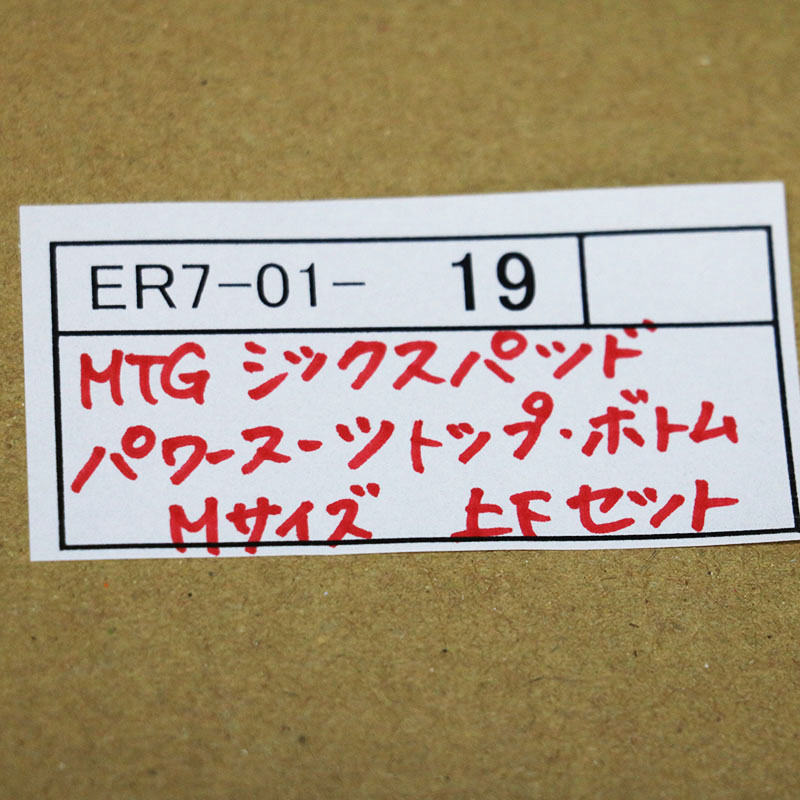 ER7-01- 19
MTG シックスパッド
パワースーツトップ・ボトム
Mサイズ 上下セット